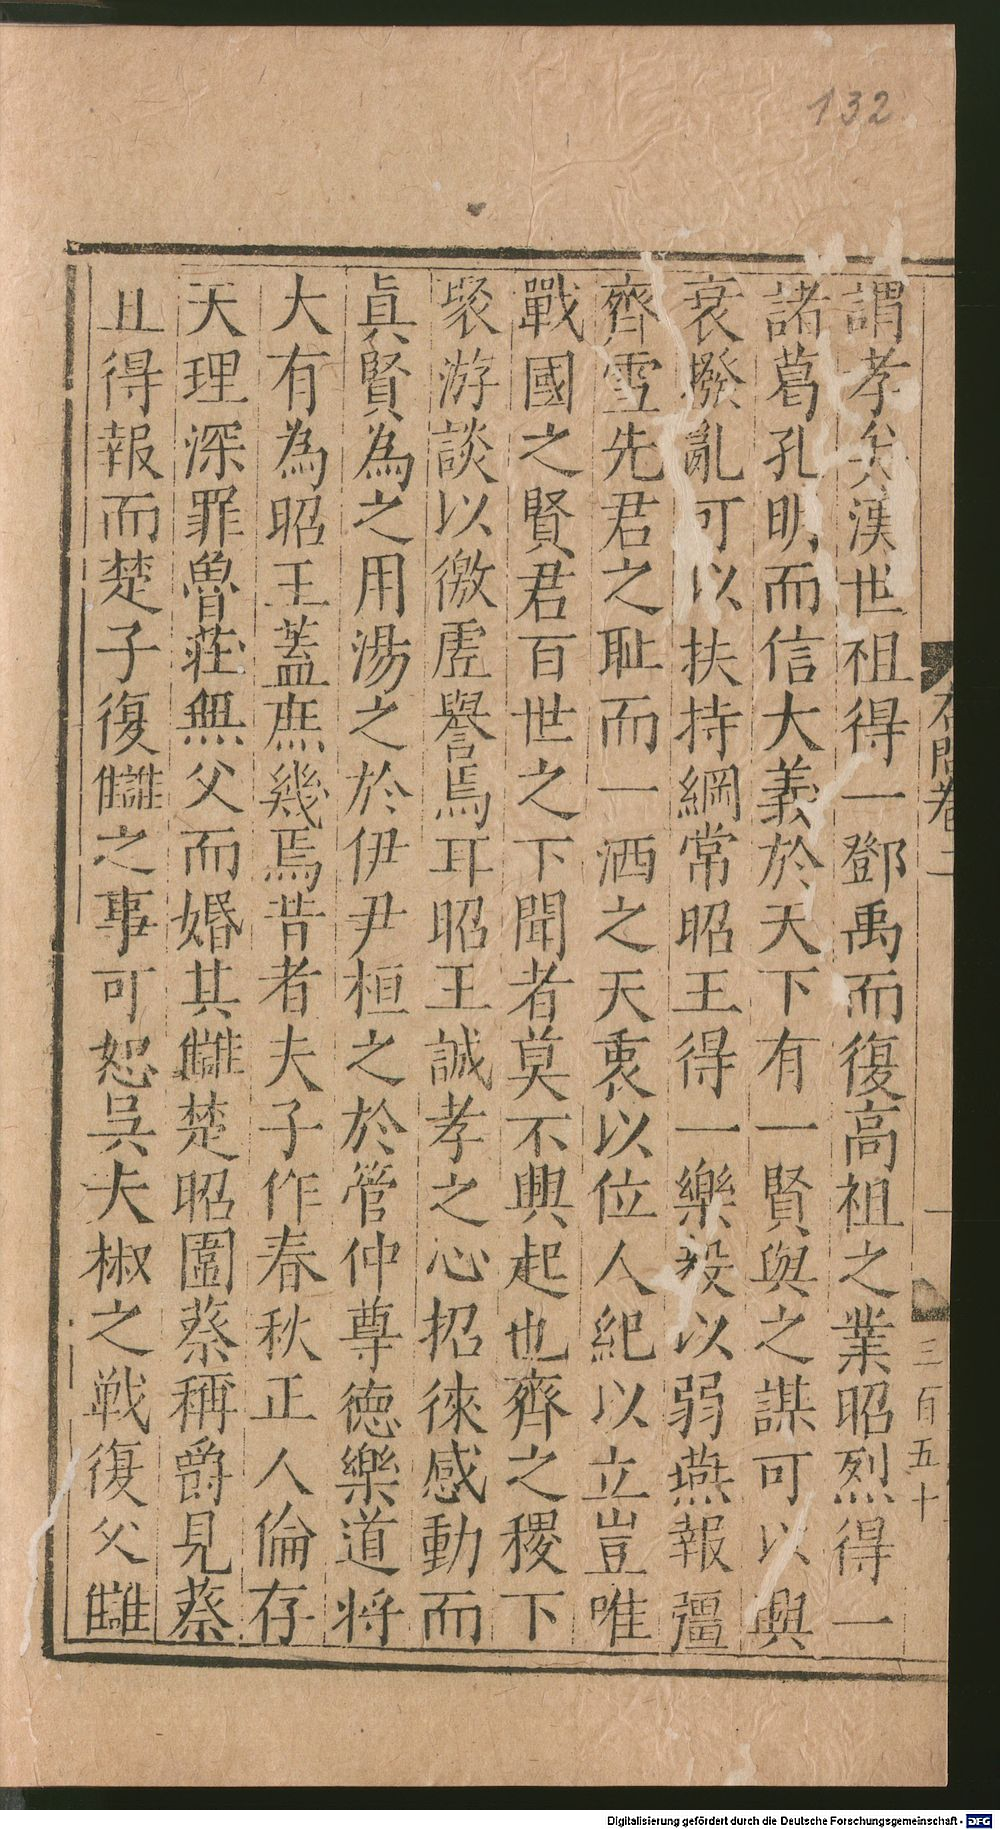 132
謂孝矣漢世祖得一鄧禹而復高祖之業昭烈得一
諸葛孔明而信大義於天下有一賢與之謀可以興
衰撥亂可以扶持綱常昭王得一樂毅以弱燕報彊
齊雪先君之耻而一洒之天衷以位人紀以立豈唯
戰國之賢君百世之下聞者莫不興起也齊之稷下
聚游談以徼虗譽焉耳昭王誠孝之心招徠感動而
眞賢為之用湯之於伊尹桓之於管仲尊德樂道将
大有為昭王蓋庶幾焉昔者夫子作春秋正人倫存
天理深罪魯莊無父而婚其讎楚昭圍蔡稱爵見蔡
且得報而楚子復讎之事可恕吳夫椒之戰復父讎
卷二
三百五十
Digitalisierung gefördert durch die Deutsche Forschungsgemeinschaft - DFG